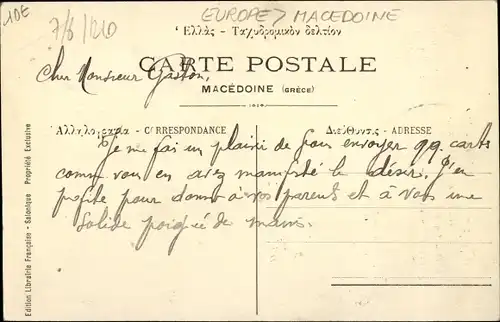 10E
7/6/20
EUROPE > MACEDOINE
Ἑλλὰς - Ταχυδρομικὸν δελτίον
CARTE POSTALE
Cher Monsieur Gaston,
MACÉDOINE (GRÈCE)
Ἀλληλογραφία - CORRESPONDANCE
Διεύθυνσις - ADRESSE
Je me fais un plaisir de vous envoyer qq. cartes
comme vous en avez manifesté le désir. J'en
profite pour donner à vos parents et à vous une
solide poignée de mains.
Edition Librairie Française - Salonique Propriété Exclusive